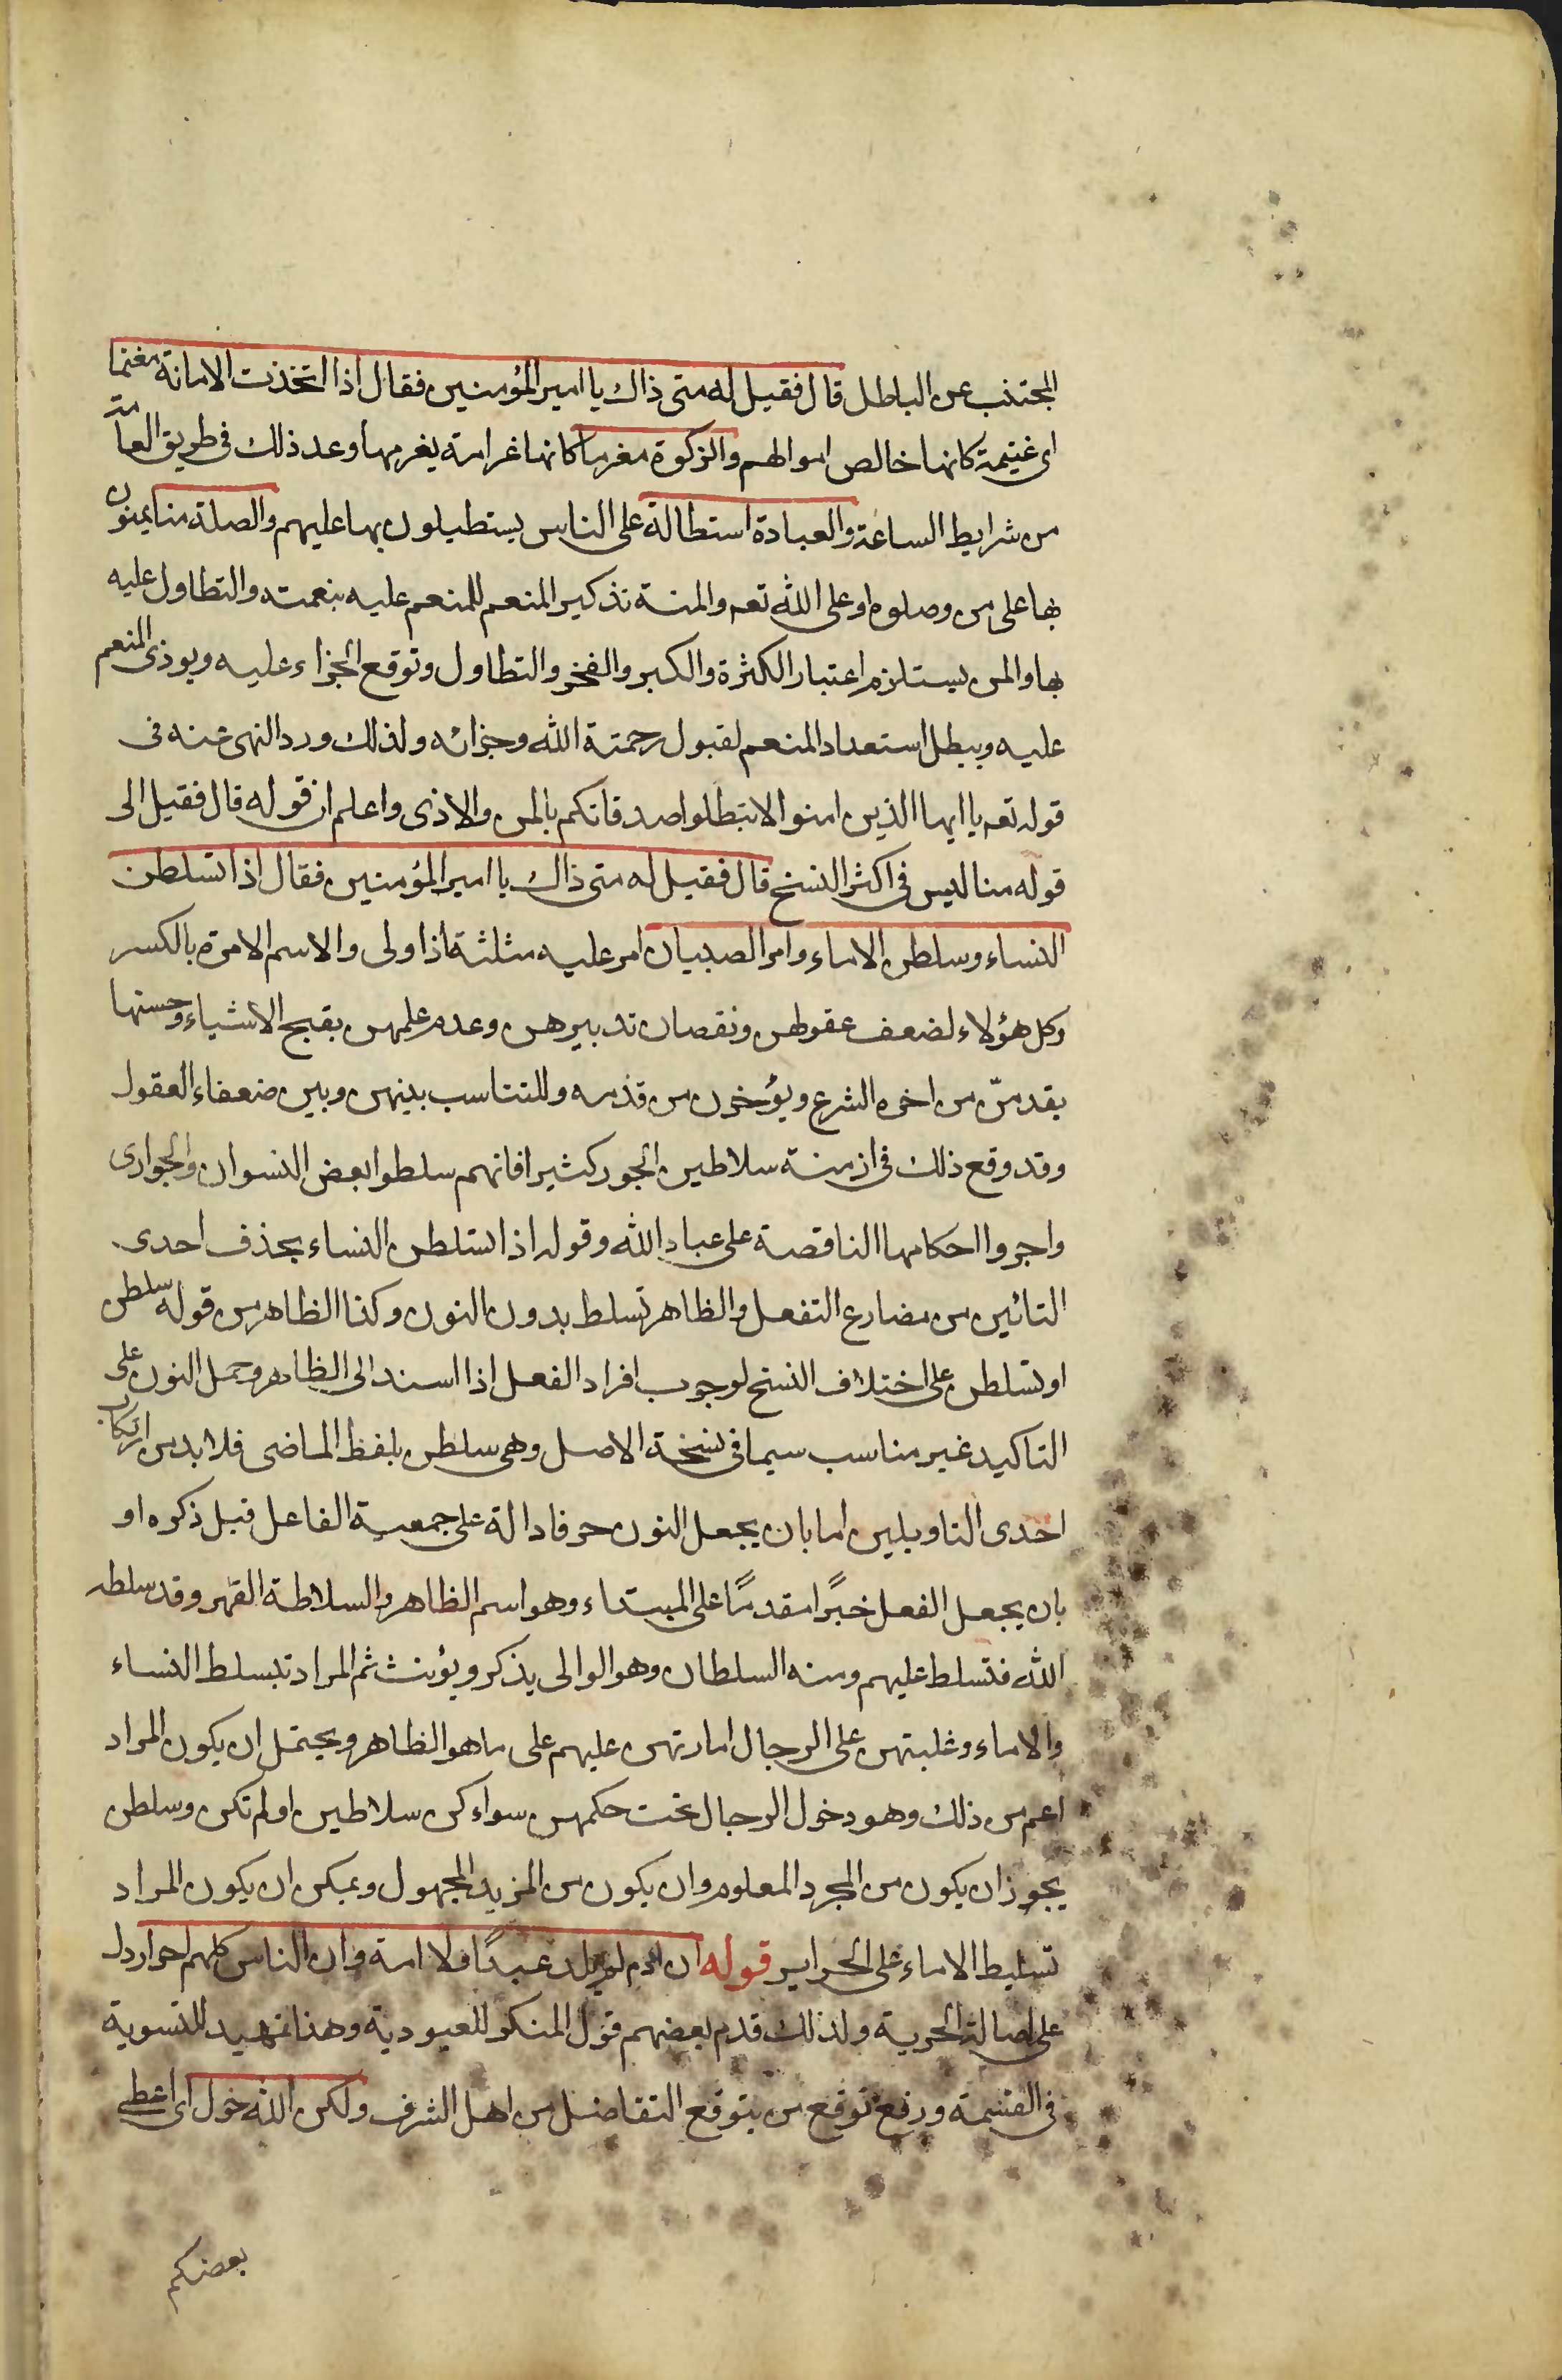 المجتنب عن الباطل قال فقيل له متى ذاك يا امير المؤمنين فقال اذا اتخذت الامانة مغنما
اى غنيمة كانها خالص اموالهم والزكوة مغرما كانها غرامة يغرمها وعد ذلك فى طريق العامة
من شرايط الساعة والعبادة استطالة على الناس يستطيلون بها عليهم والصلة منا يمنون
بها على من وصلوه او على الله تعه والمنة تذكير المنعم للمنعم عليه بنعمته والتطاول عليه
بها والمن يستلزم اعتبار الكثرة والكبر والفخر والتطاول وتوقع الجزاء عليه ويوذى المنعم
عليه ويبطل استعداد المنعم لقبول رحمة الله وجزائه ولذلك ورد النهى عنه فى
قوله تعه يا ايها الذين امنوا لا تبطلوا صدقاتكم بالمن والاذى واعلم ان قوله قال فقيل الى
قوله منا ليس فى اكثر النسخ قال فقيل له متى ذاك يا امير المؤمنين فقال اذا تسلطن
النساء وسلطن الاماء وامر الصبيان امر عليه مثلثة اذا ولى والاسم الامرة بالكسر
وكل هؤلاء لضعف عقولهن ونقصان تدبيرهن وعدم علمهن بقبح الاشياء وحسنها
يقدمن من اخره الشرع ويؤخرن من قدمه وللتناسب بينهن وبين ضعفاء العقول
وقد وقع ذلك فى ازمنة سلاطين الجور كثيرا فانهم سلطوا بعض النسوان والجوارى
واجروا احكامها الناقصة على عباد الله وقوله اذا تسلطن النساء بحذف احدى
التائين من مضارع التفعل والظاهر تسلط بدون النون وكذا الظاهر من قوله سلطن
او تسلطن على اختلاف النسخ لوجوب افراد الفعل اذا اسند الى الظاهر وحمل النون على
التاكيد غير مناسب سيما فى نسخة الاصل وهى سلطن بلفظ الماضى فلا بد من ارتكاب
احدى التاويلين اما بان يجعل النون حرفا دالة على جمعية الفاعل قبل ذكره او
بان يجعل الفعل خبرًا مقدمًا على المبتداء وهو اسم الظاهر والسلاطة القهر وقد سلطه
الله فتسلط عليهم ومنه السلطان وهو الوالى يذكر ويؤنث ثم المراد تبسلط النساء
والاماء وغلبتهن على الرجال امارتهن عليهم على ما هو الظاهر ويحتمل ان يكون المراد
اعم من ذلك وهو دخول الرجال تحت حكمهن سواء كن سلاطين او لم تكن وسلطن
يجوز ان يكون من المجرد المعلوم وان يكون من المزيد المجهول ويمكن ان يكون المراد
تسليط الاماء على الحراير قوله ان ادم لم يلد عبدًا ولا امة وان الناس كلهم احرار دل
على اصالة الحرية ولذلك قدم بعضهم قول المنكر للعبودية وهذا تمهيد للتسوية
فى القسمة ورفع توقع من يتوقع التفاضل من اهل الشرف ولكن الله خول اى اعطى
بعضكم